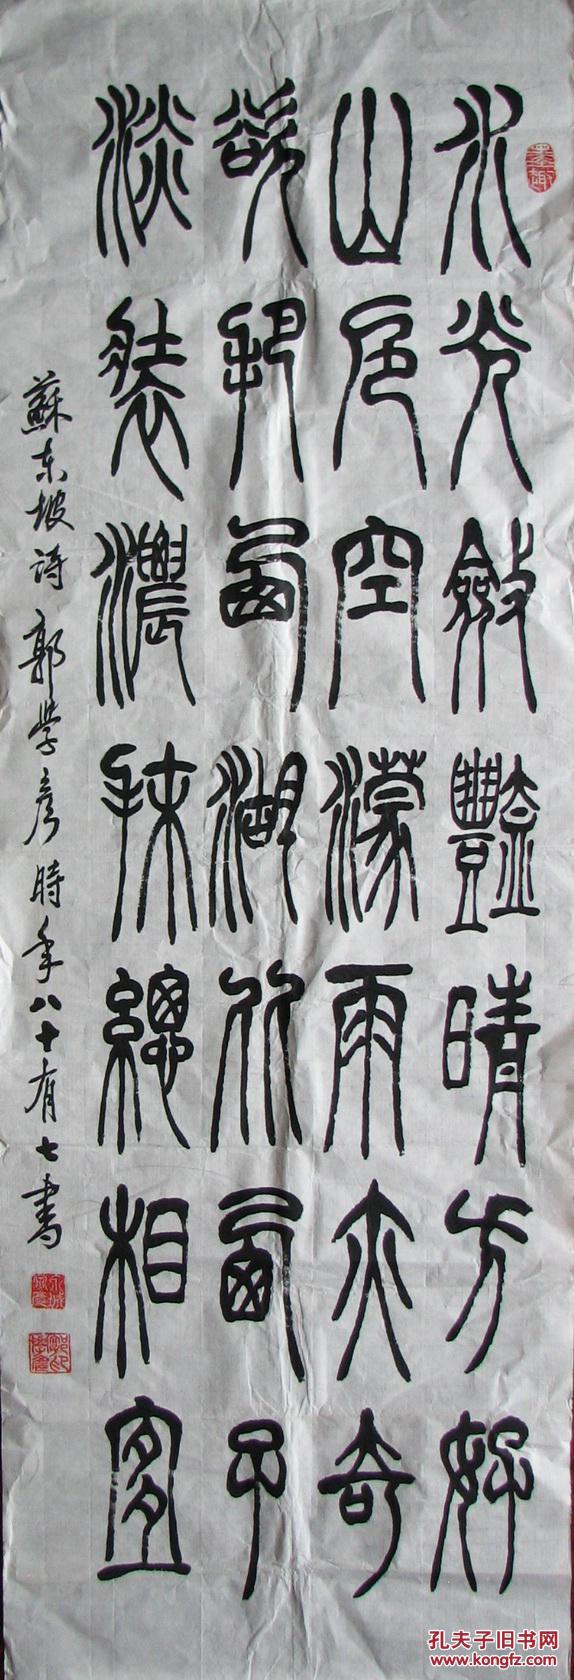 墨趣
水光斂豔晴方好
山色空濛雨亦奇
欲把西湖比西子
淡裝濃抹總相宜
蘇东坡诗 郭学彦時年八十有七書
孔夫子旧书网
www.kongfz.com